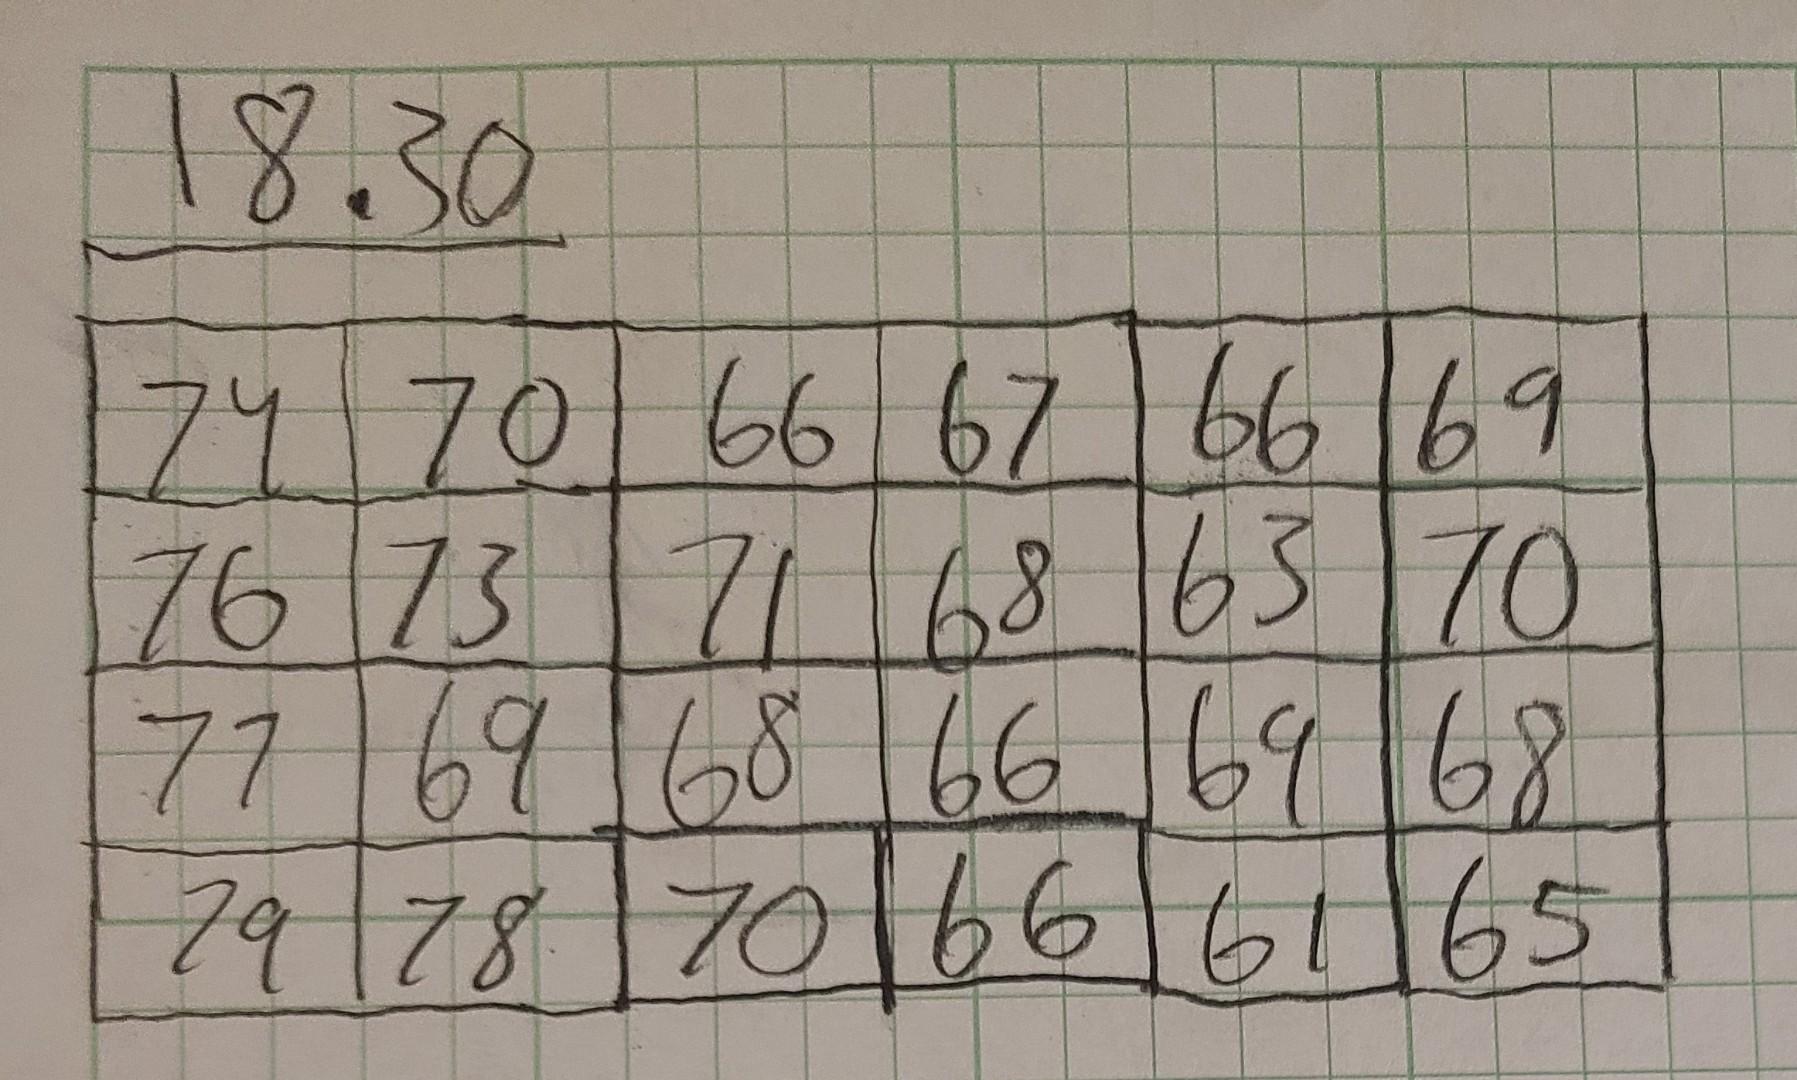 18.30
74 70 66 67 66 69
76 73 71 68 63 70
77 69 68 66 69 68
79 78 70 66 61 65